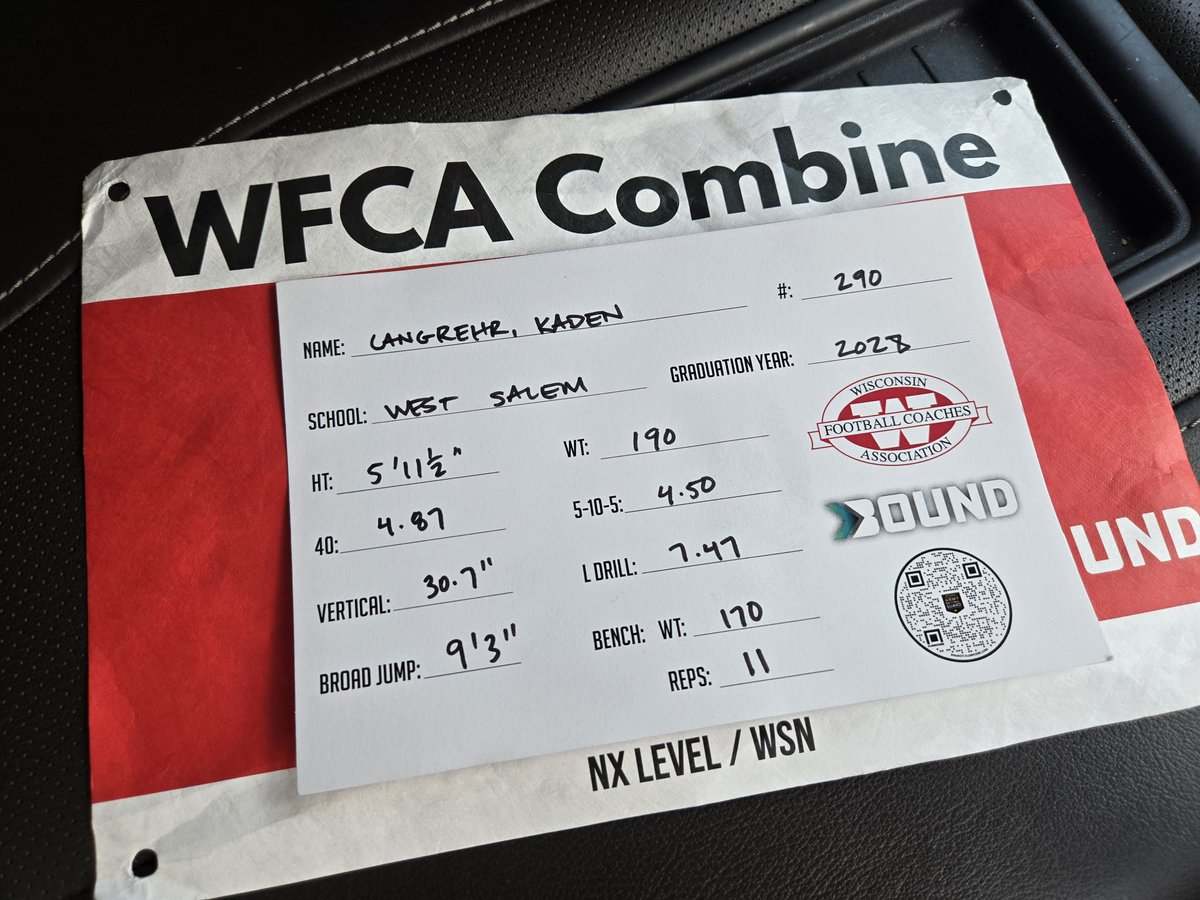 WFCA Combine
NAME: LANGREHR, KADEN #: 290
SCHOOL: WEST SALEM GRADUATION YEAR: 2028
HT: 5'11½" WT: 190
40: 4.87 5-10-5: 4.50
VERTICAL: 30.7" L DRILL: 7.47
BROAD JUMP: 9'3" BENCH: WT: 170
REPS: 11
WISCONSIN
FOOTBALL COACHES
ASSOCIATION
BOUND
UND
NX LEVEL / WSN